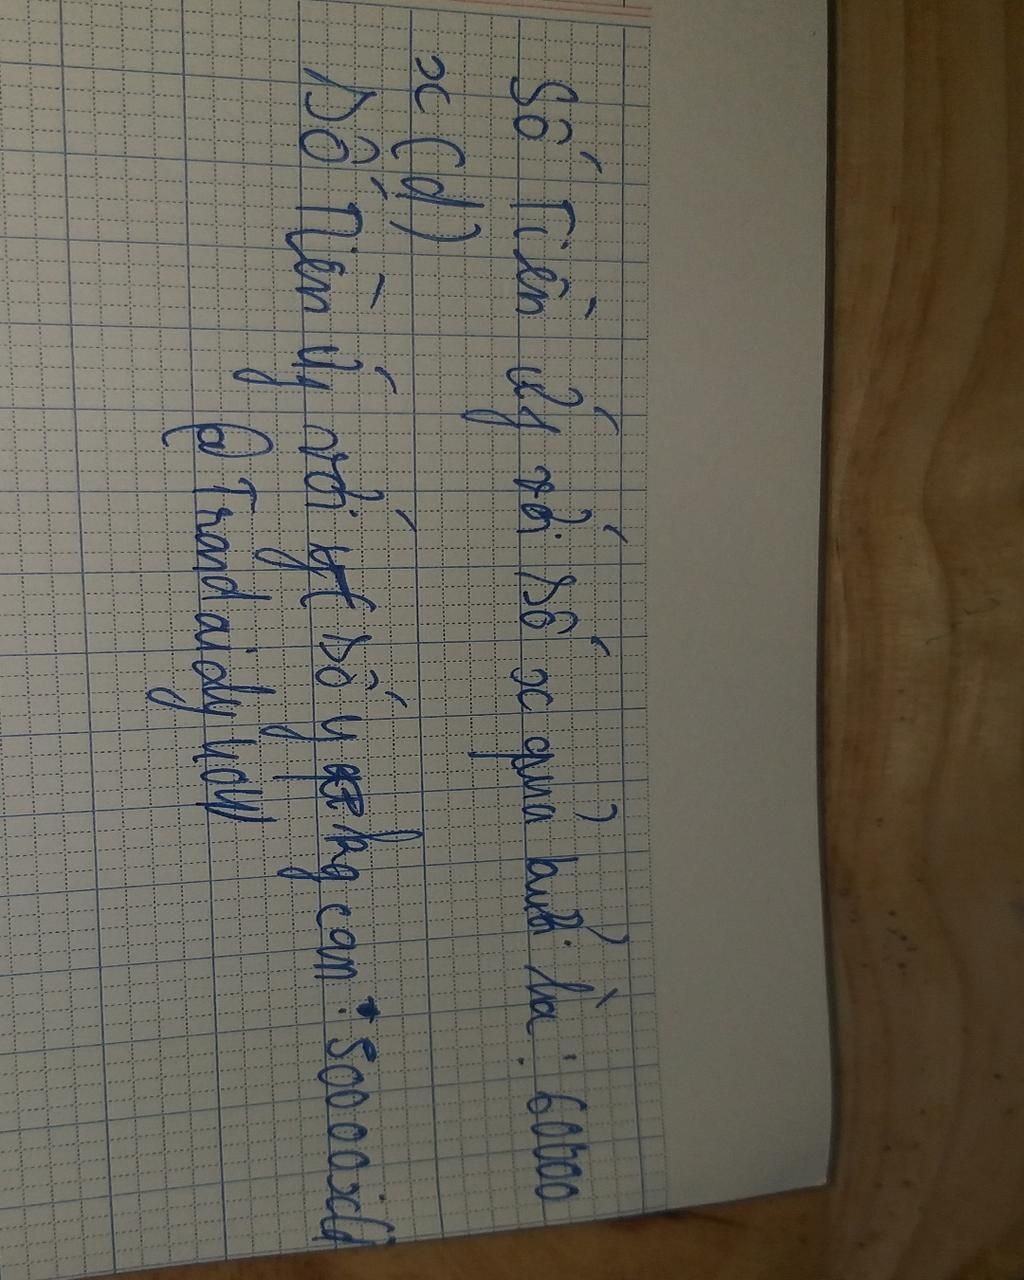 Số Tiền ứng với số x quả bưởi là : 60000
x (đ)
Số Tiền ứng với số y kg cam : 50000x(đ
@ Trandaidy